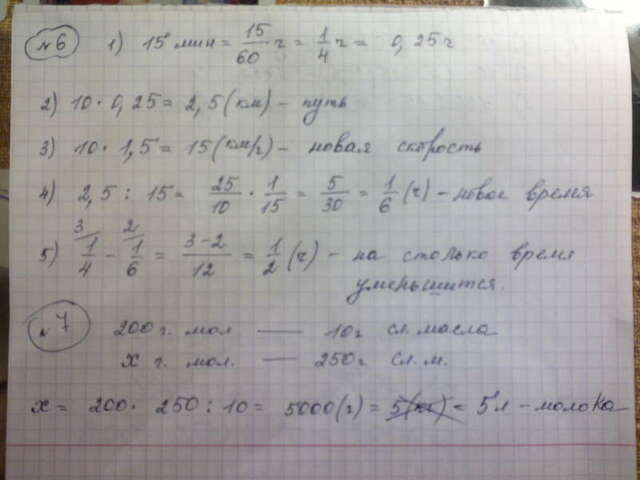 №6 1) 15 мин = 15/60 ч = 1/4 ч = 0,25 ч
2) 10 · 0,25 = 2,5 (км) – путь
3) 10 · 1,5 = 15 (км/ч) – новая скорость
4) 2,5 : 15 = 25/10 · 1/15 = 5/30 = 1/6 (ч) – новое время
5) 3/ 1/4 – 2/ 1/6 = 3-2/12 = 1/2 (ч) – на столько время
уменьшится.
№7 200 г. мол — 10 г сл. масла
х г. мол. — 250 г сл. м.
х = 200 · 250 : 10 = 5000 (г) = = 5 л – молока